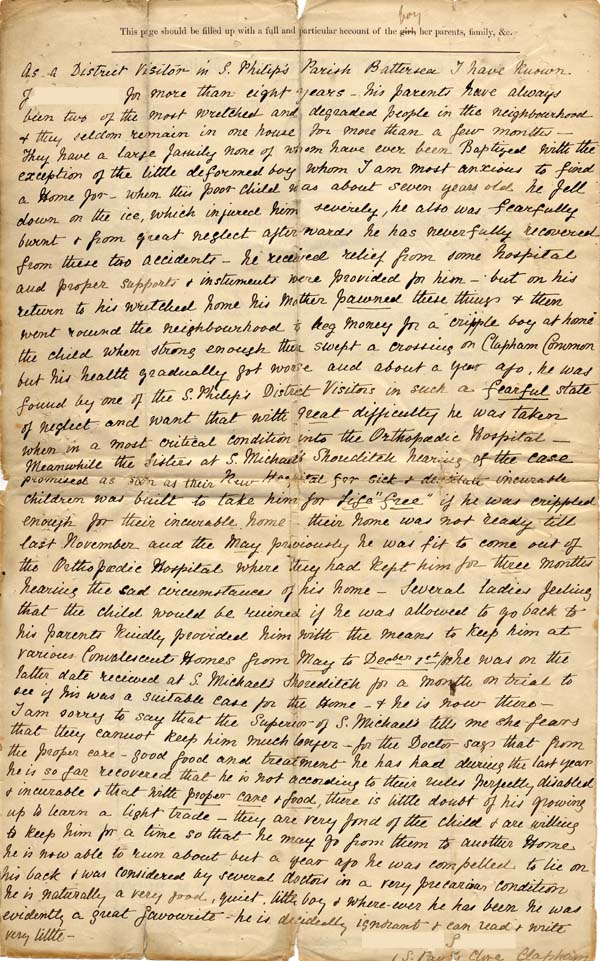 boy
This page should be filled up with a full and particular account of the girl, her parents, family, &c.
As a District Visitor in S. Philip's Parish Battersea I have known
J for more than eight years - his parents have always
been two of the most wretched and degraded people in the neighbourhood
& they seldom remain in one house for more than a few months -
They have a large family none of whom have ever been Baptized with the
exception of the little deformed boy whom I am most anxious to find
a Home for - when this poor child was about seven years old he fell
down on the ice, which injured him severely, he also was fearfully
burnt & from great neglect afterwards he has never fully recovered
from these two accidents - he received relief from some hospital
and proper supports & instruments were provided for him - but on his
return to his wretched home his Mother pawned these things & then
went round the neighbourhood to beg money for a "cripple boy at home"
the child when strong enough then swept a crossing on Clapham Common
but his health gradually got worse and about a year ago, he was
found by one of the S. Philip's District Visitors in such a fearful state
of neglect and want that with great difficulty he was taken
when in a most critical condition into the Orthopœdic Hospital -
Meanwhile the Sisters at S. Michael's Shoreditch hearing of the case
promised as soon as their New Hospital for sick & destitute incurable
children was built to take him for life "free" if he was crippled
enough for their incurable home - their home was not ready till
last November and the May previously he was fit to come out of
the Orthopœdic Hospital where they had kept him for three months
hearing the sad circumstances of his home - Several ladies feeling
that the child would be ruined if he was allowed to go back to
his parents kindly provided him with the means to keep him at
various Convalescent Homes from May to Decber 1st he was on the
latter date received at S. Michael's Shoreditch for a month on trial to
see if his was a suitable case for the Home - & he is now there -
I am sorry to say that the Superior of S. Michael's tells me she fears
that they cannot keep him much longer - for the Doctor says that from
the proper care - good food and treatment he has had during the last year
he is so far recovered that he is not according to their rules perfectly disabled
& incurable & that with proper care & food, there is little doubt of his growing
up to learn a light trade - they are very fond of the child & are willing
to keep him for a time so that he may go from them to another Home
he is now able to run about but a year ago he was compelled to lie on
his back & was considered by several doctors in a very precarious condition
he is naturally a very good, quiet, little boy & where-ever he has been he was
evidently a great favourite - he is decidedly ignorant & can read & write
very little -
Clapham